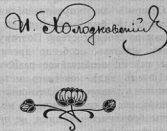 Н. Холодковский